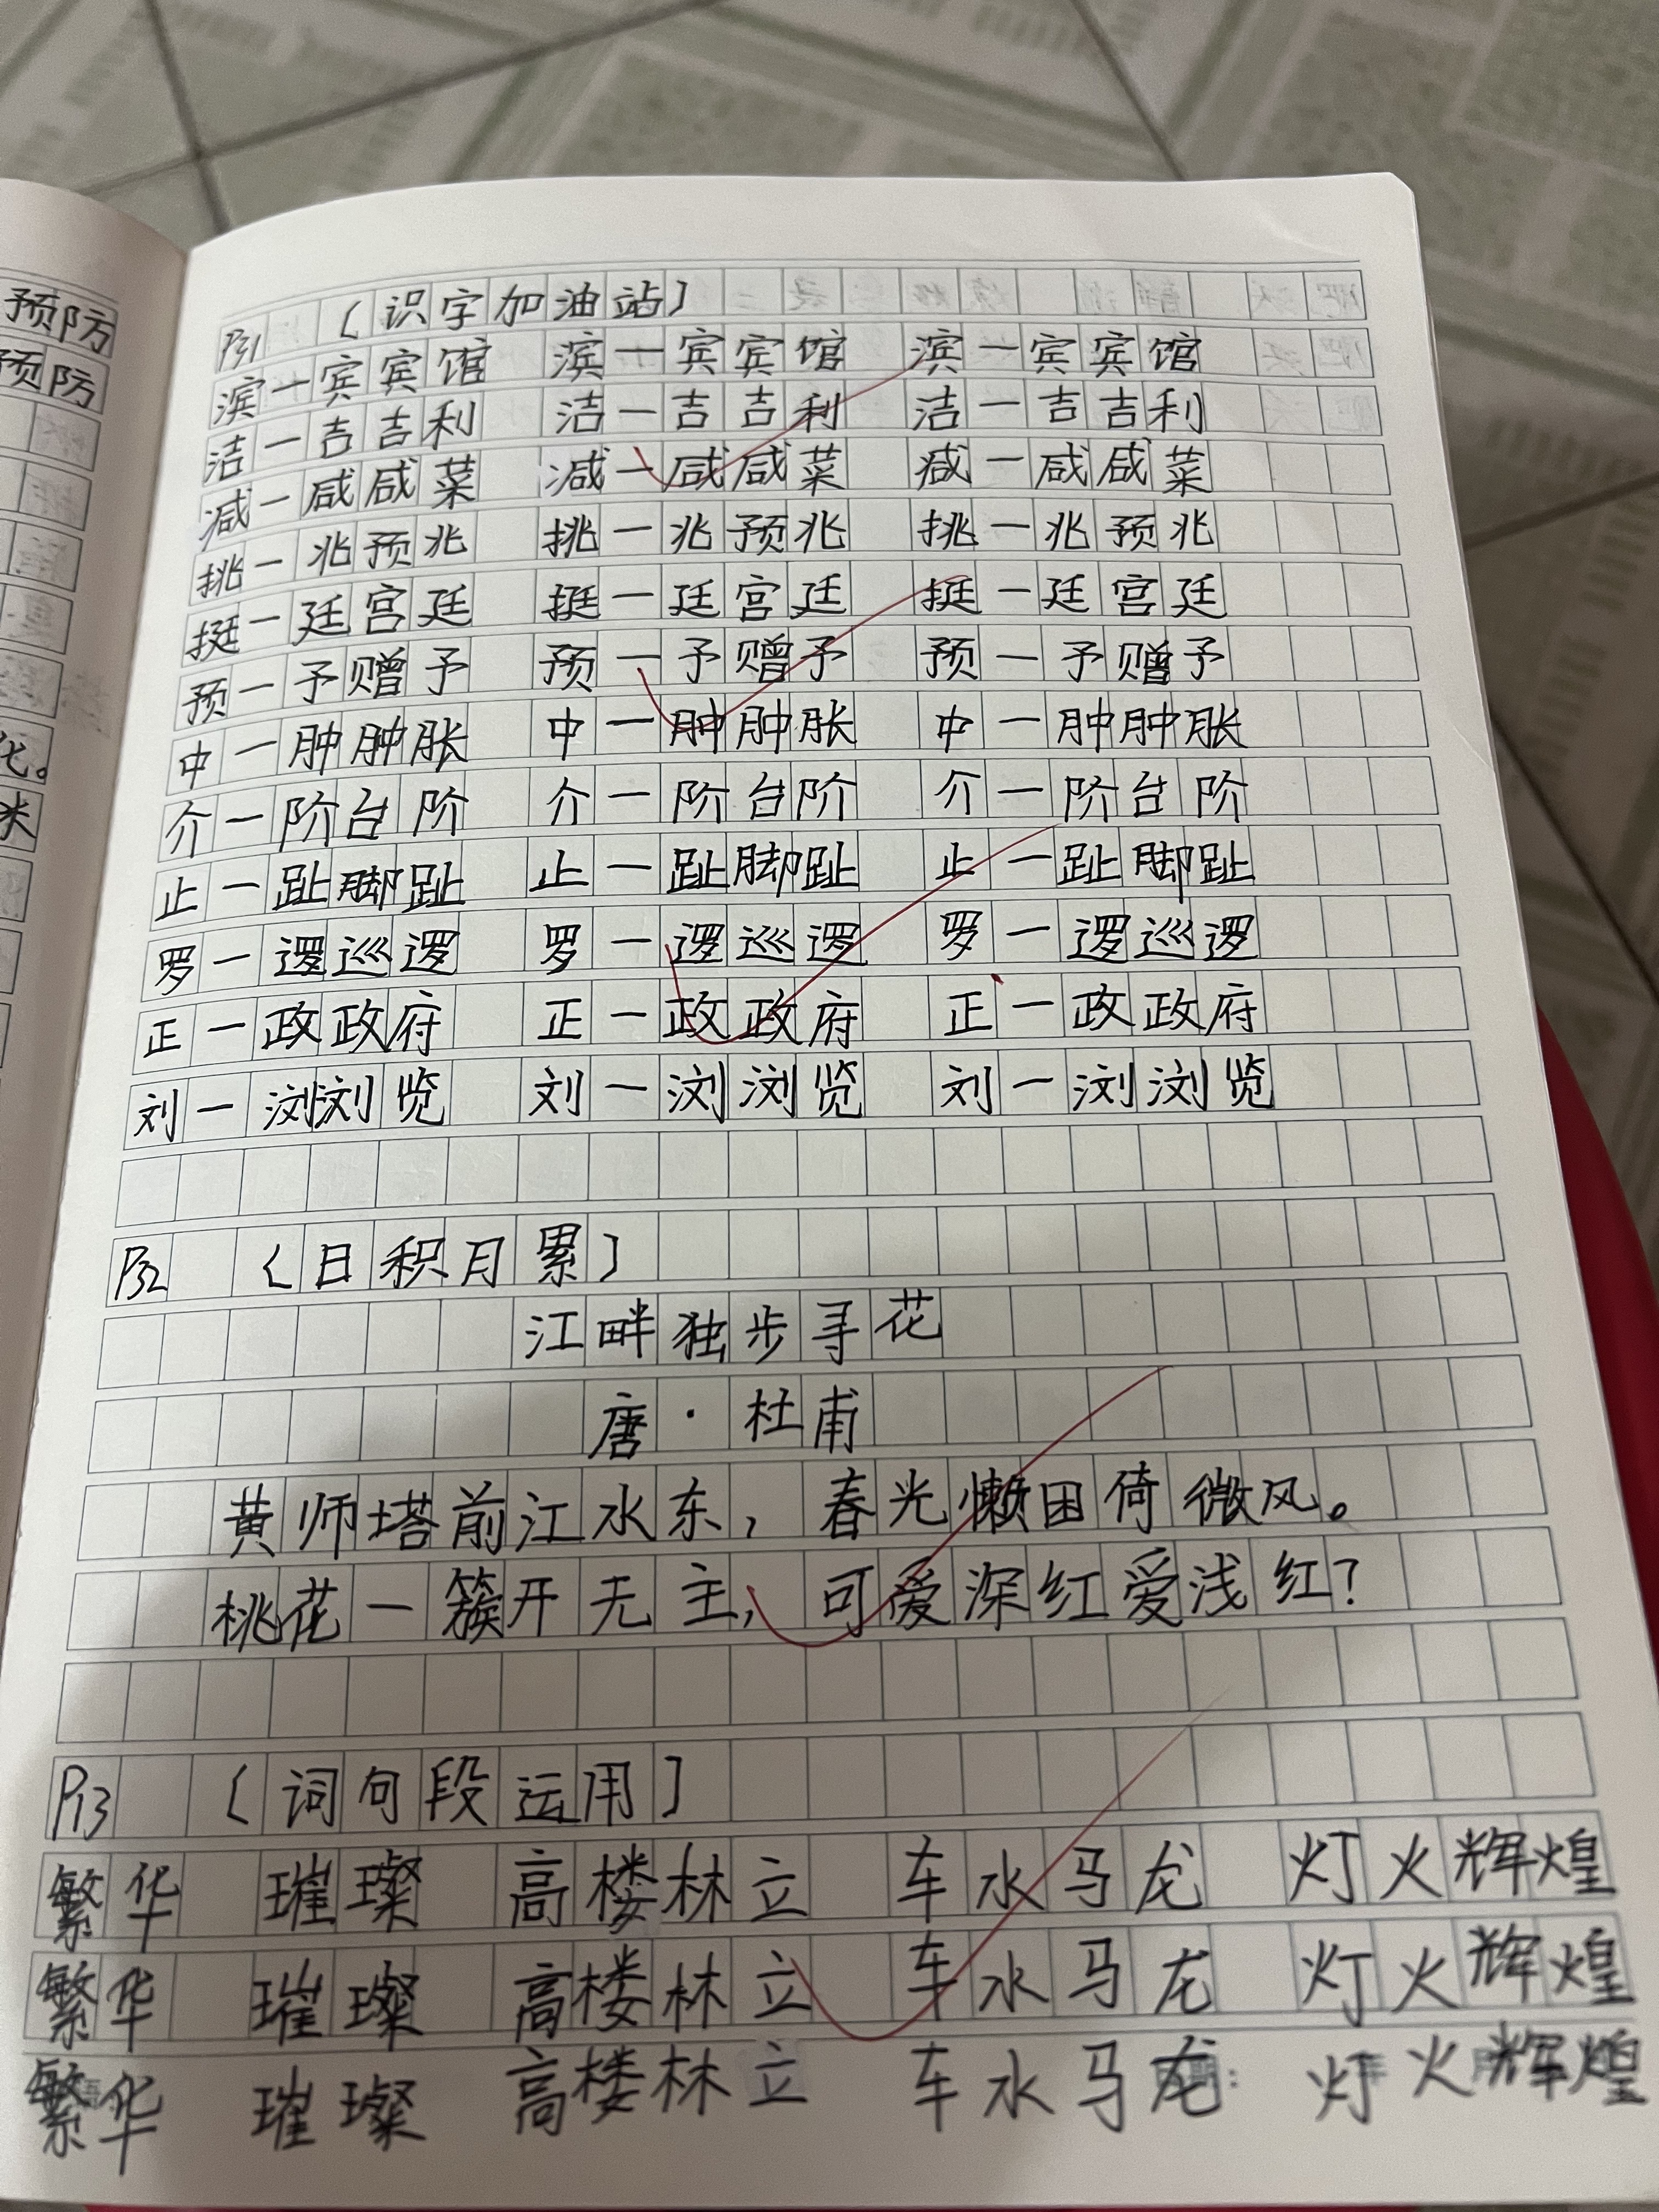 预防
预防
化。
米
P31 〔识字加油站〕
滨一宾宾馆 滨一宾宾馆 滨一宾宾馆
洁一吉吉利 洁一吉吉利 洁一吉吉利
减一咸咸菜 减一咸咸菜 减一咸咸菜
挑一兆预兆 挑一兆预兆 挑一兆预兆
挺一廷宫廷 挺一廷宫廷 挺一廷宫廷
预一予赠予 预一予赠予 预一予赠予
中一肿肿胀 中一肿肿胀 中一肿肿胀
介一阶台阶 介一阶台阶 介一阶台阶
止一趾脚趾 止一趾脚趾 止一趾脚趾
罗一逻巡逻 罗一逻巡逻 罗一逻巡逻
正一政政府 正一政政府 正一政政府
刘一浏浏览 刘一浏浏览 刘一浏浏览
P32 〔日积月累〕
江畔独步寻花
唐·杜甫
黄师塔前江水东，春光懒困倚微风。
桃花一簇开无主，可爱深红爱浅红？
P13 〔词句段运用〕
繁华 璀璨 高楼林立 车水马龙 灯火辉煌
繁华 璀璨 高楼林立 车水马龙 灯火辉煌
繁华 璀璨 高楼林立 车水马龙 灯火辉煌